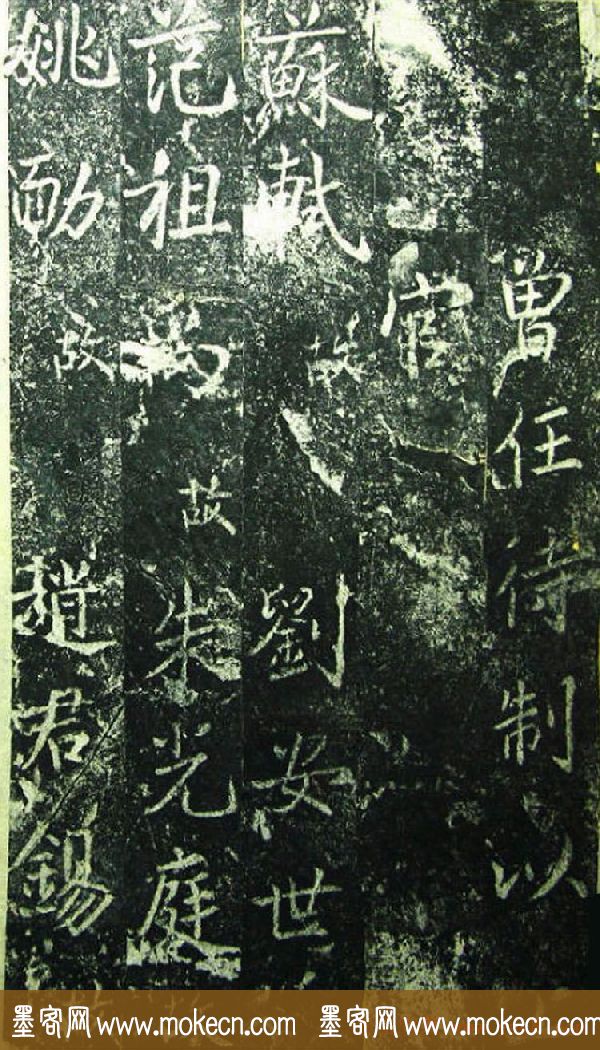 曾任待制以
官
蘇軾 故 劉安世
范祖禹 故 朱光庭
姚勔 故 趙君錫
墨客网 www.mokecn.com 墨客网 www.mokecn.com